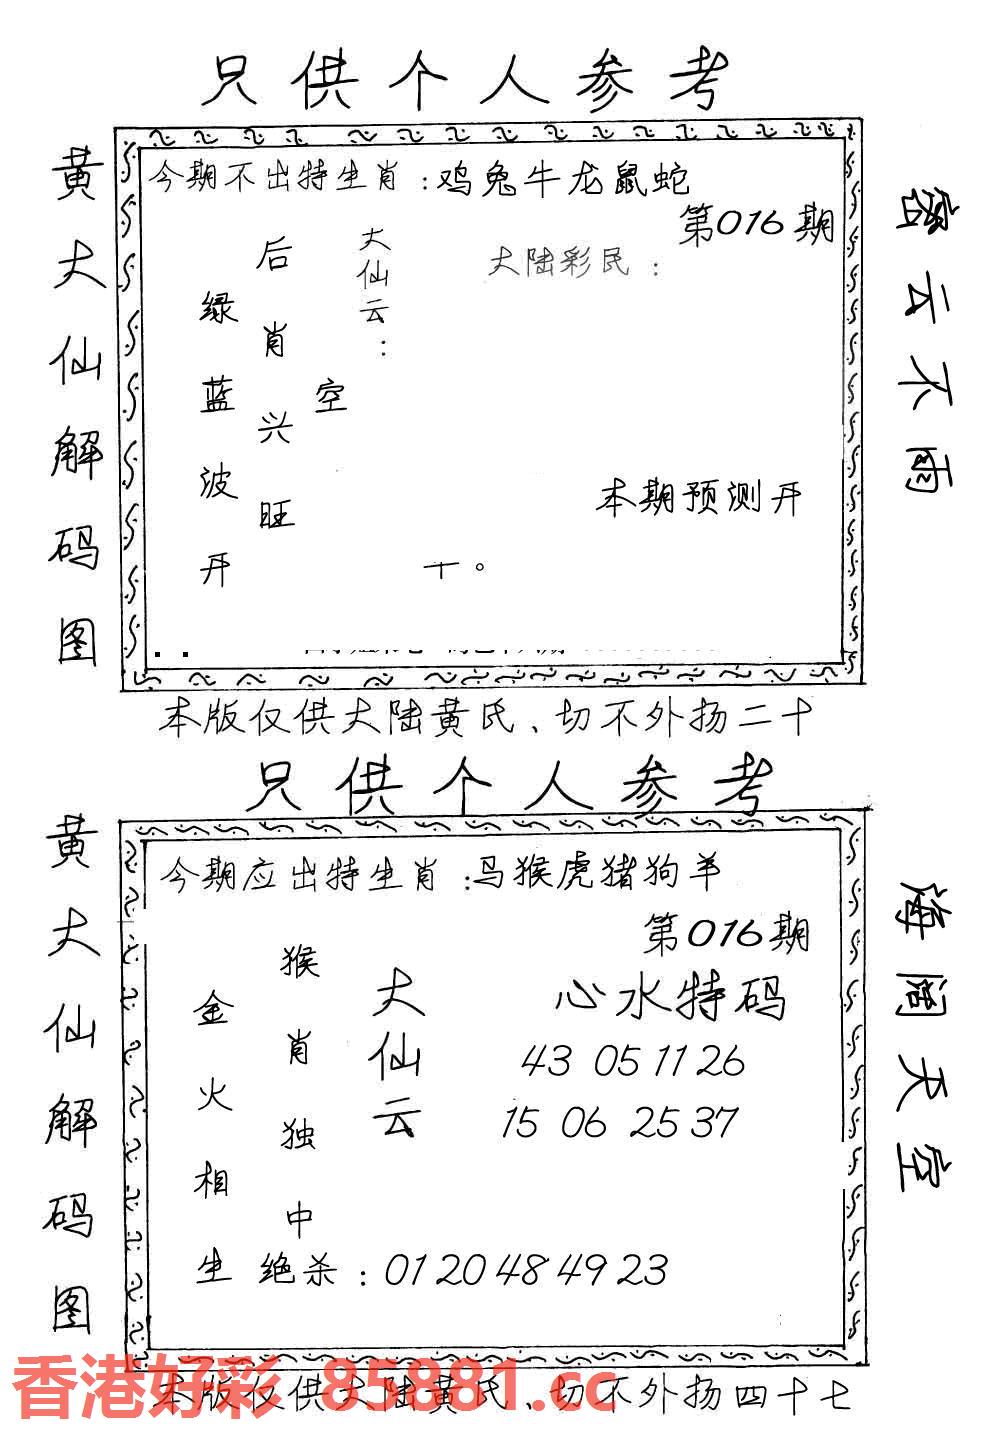 只供个人参考
黄大仙解码图
今期不出特生肖:鸡兔牛龙鼠蛇
第016期
大陆彩民:
大仙云:
后肖兴旺
空
绿蓝波开
本期预测开
十。
密云不雨
本版仅供大陆黄氏、切不外扬二十
只供个人参考
黄大仙解码图
今期应出特生肖:马猴虎猪狗羊
第016期
心水特码
43 05 11 26
15 06 25 37
大仙云
猴肖独中
金火相生
绝杀:01 20 48 49 23
海阔天空
本版仅供大陆黄氏、切不外扬四十七
香港好彩 85881.cc